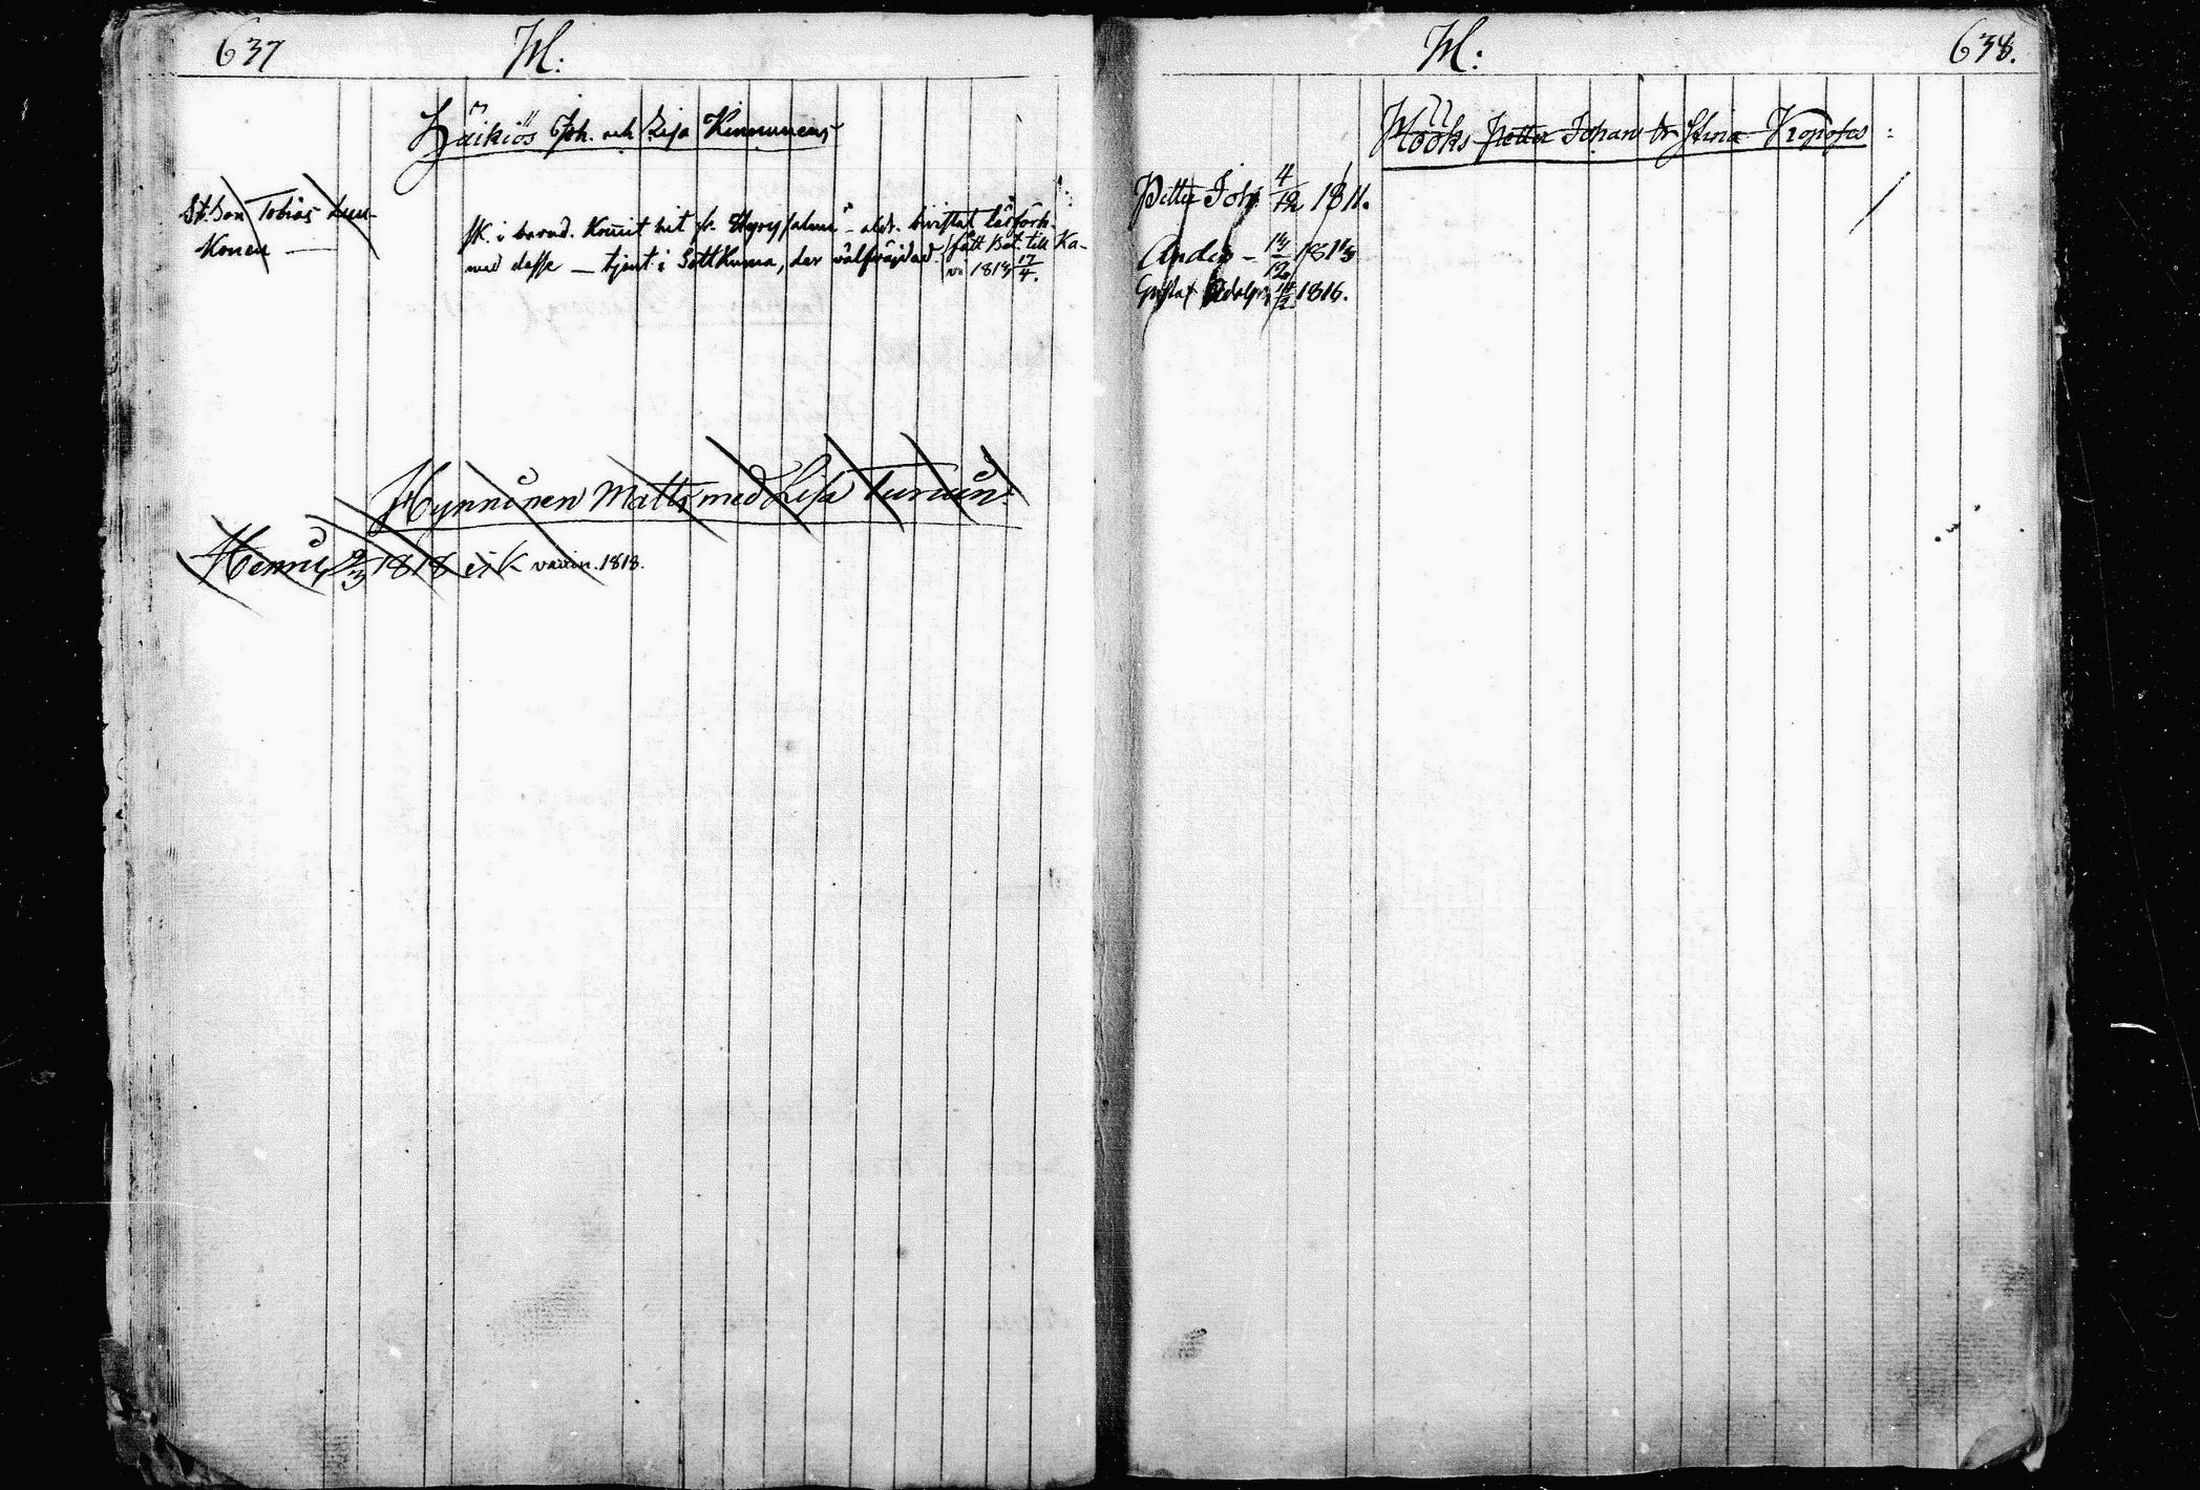 637
H:
Häikiös Joh. och Lisa Kinnunens
St.Son Tobias Len-
konen —
sk. i barnd. Komit hit fr. — aldr. bivistat läsförh.
med desse — tjent i Sottkuma, der välfräjdad. fått Bet. till Ka-
va 1814 17/4.
Hynninen Matts med Lisa Turuin:
Henric 9/3 1818 ej K vaccin. 1818.
H:
638.
Hööks Petter Johan o. Stina Kropofos :
Petter Joh 4/12 1811.
Anders – 14/12 1813
Gustaf Adolph 1816.